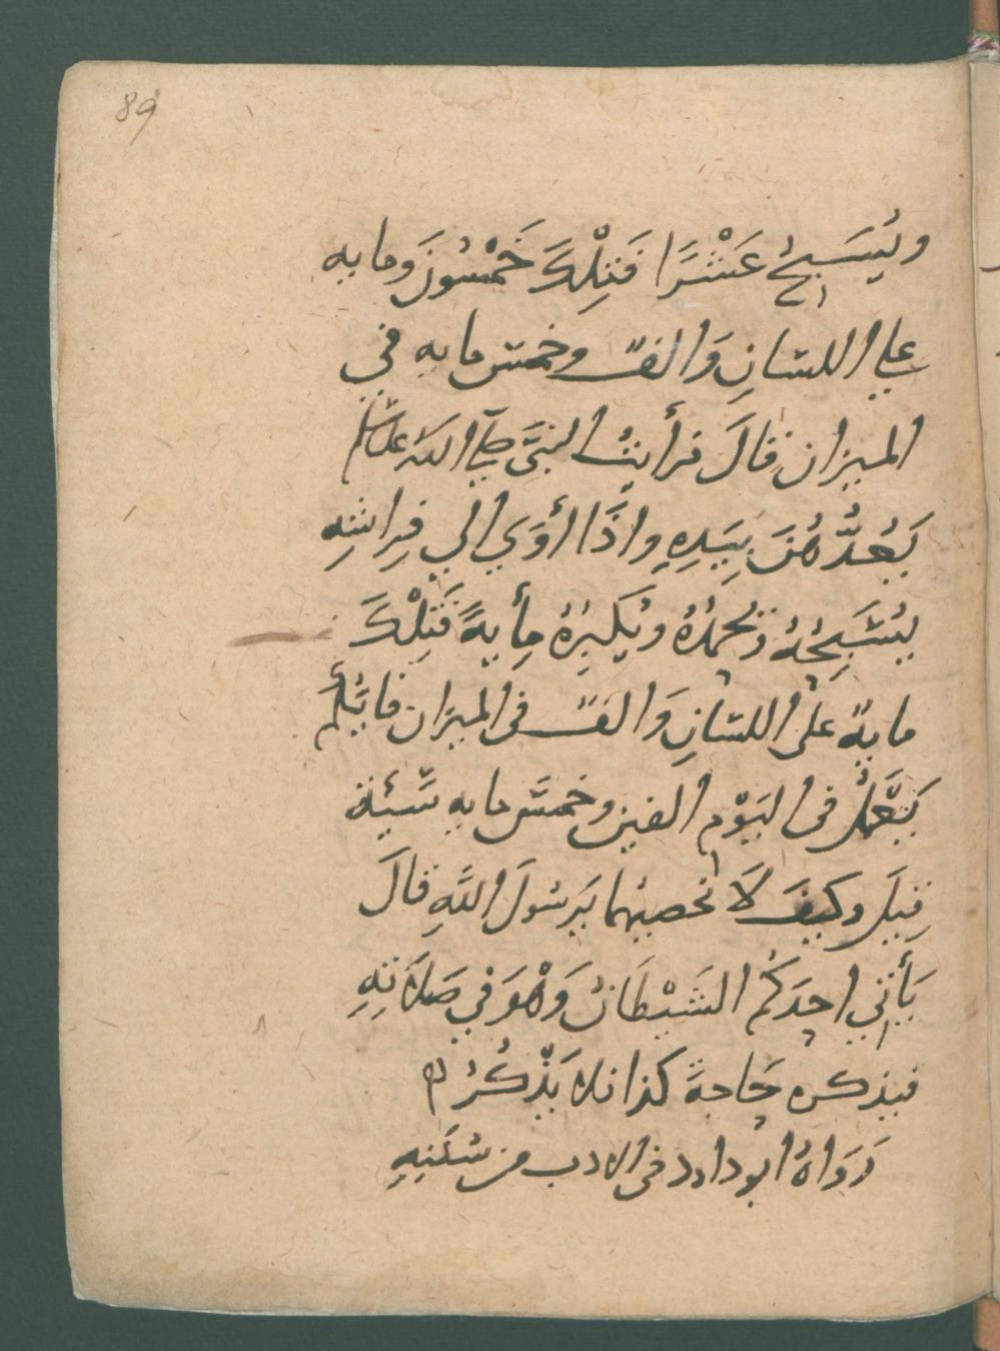 89
ويُسَبحُ عَشْرًا فَتِلْكَ خَمْسُونَ وَمايه
علي اللسانِ وَالفٌ وخمس مايه في
الميزان قالَ فرأيتُ النبيَّ صلي الله عليه وسلم
يَعُدُّهُنَ بِيَدِهِ واذَا أوَي الي فِراشِهِ
يُسَبِحُهُ ويُحمدُهُ ويُكَبِرُهُ مِأيةً فَتِلْكَ
مايةٌ على اللسَانِ وَالفٌ في الميزان فايُّكُم
يَعْمَلُ في اليَوْم الفين وخمسَ مايه سَيِّئَة
قِيلَ وكيفَ لَا نحصيهما يَرسُولَ اللَّهِ قالَ
يَأتي احدَكُم الشَيْطَانُ وَهْوَ في صَلَاتِهِ
فيذكره حَاجةَ كذا فلا يَذْكُرُه
رَوَاهُ ابو داود في الادب من سُنَنِهِ